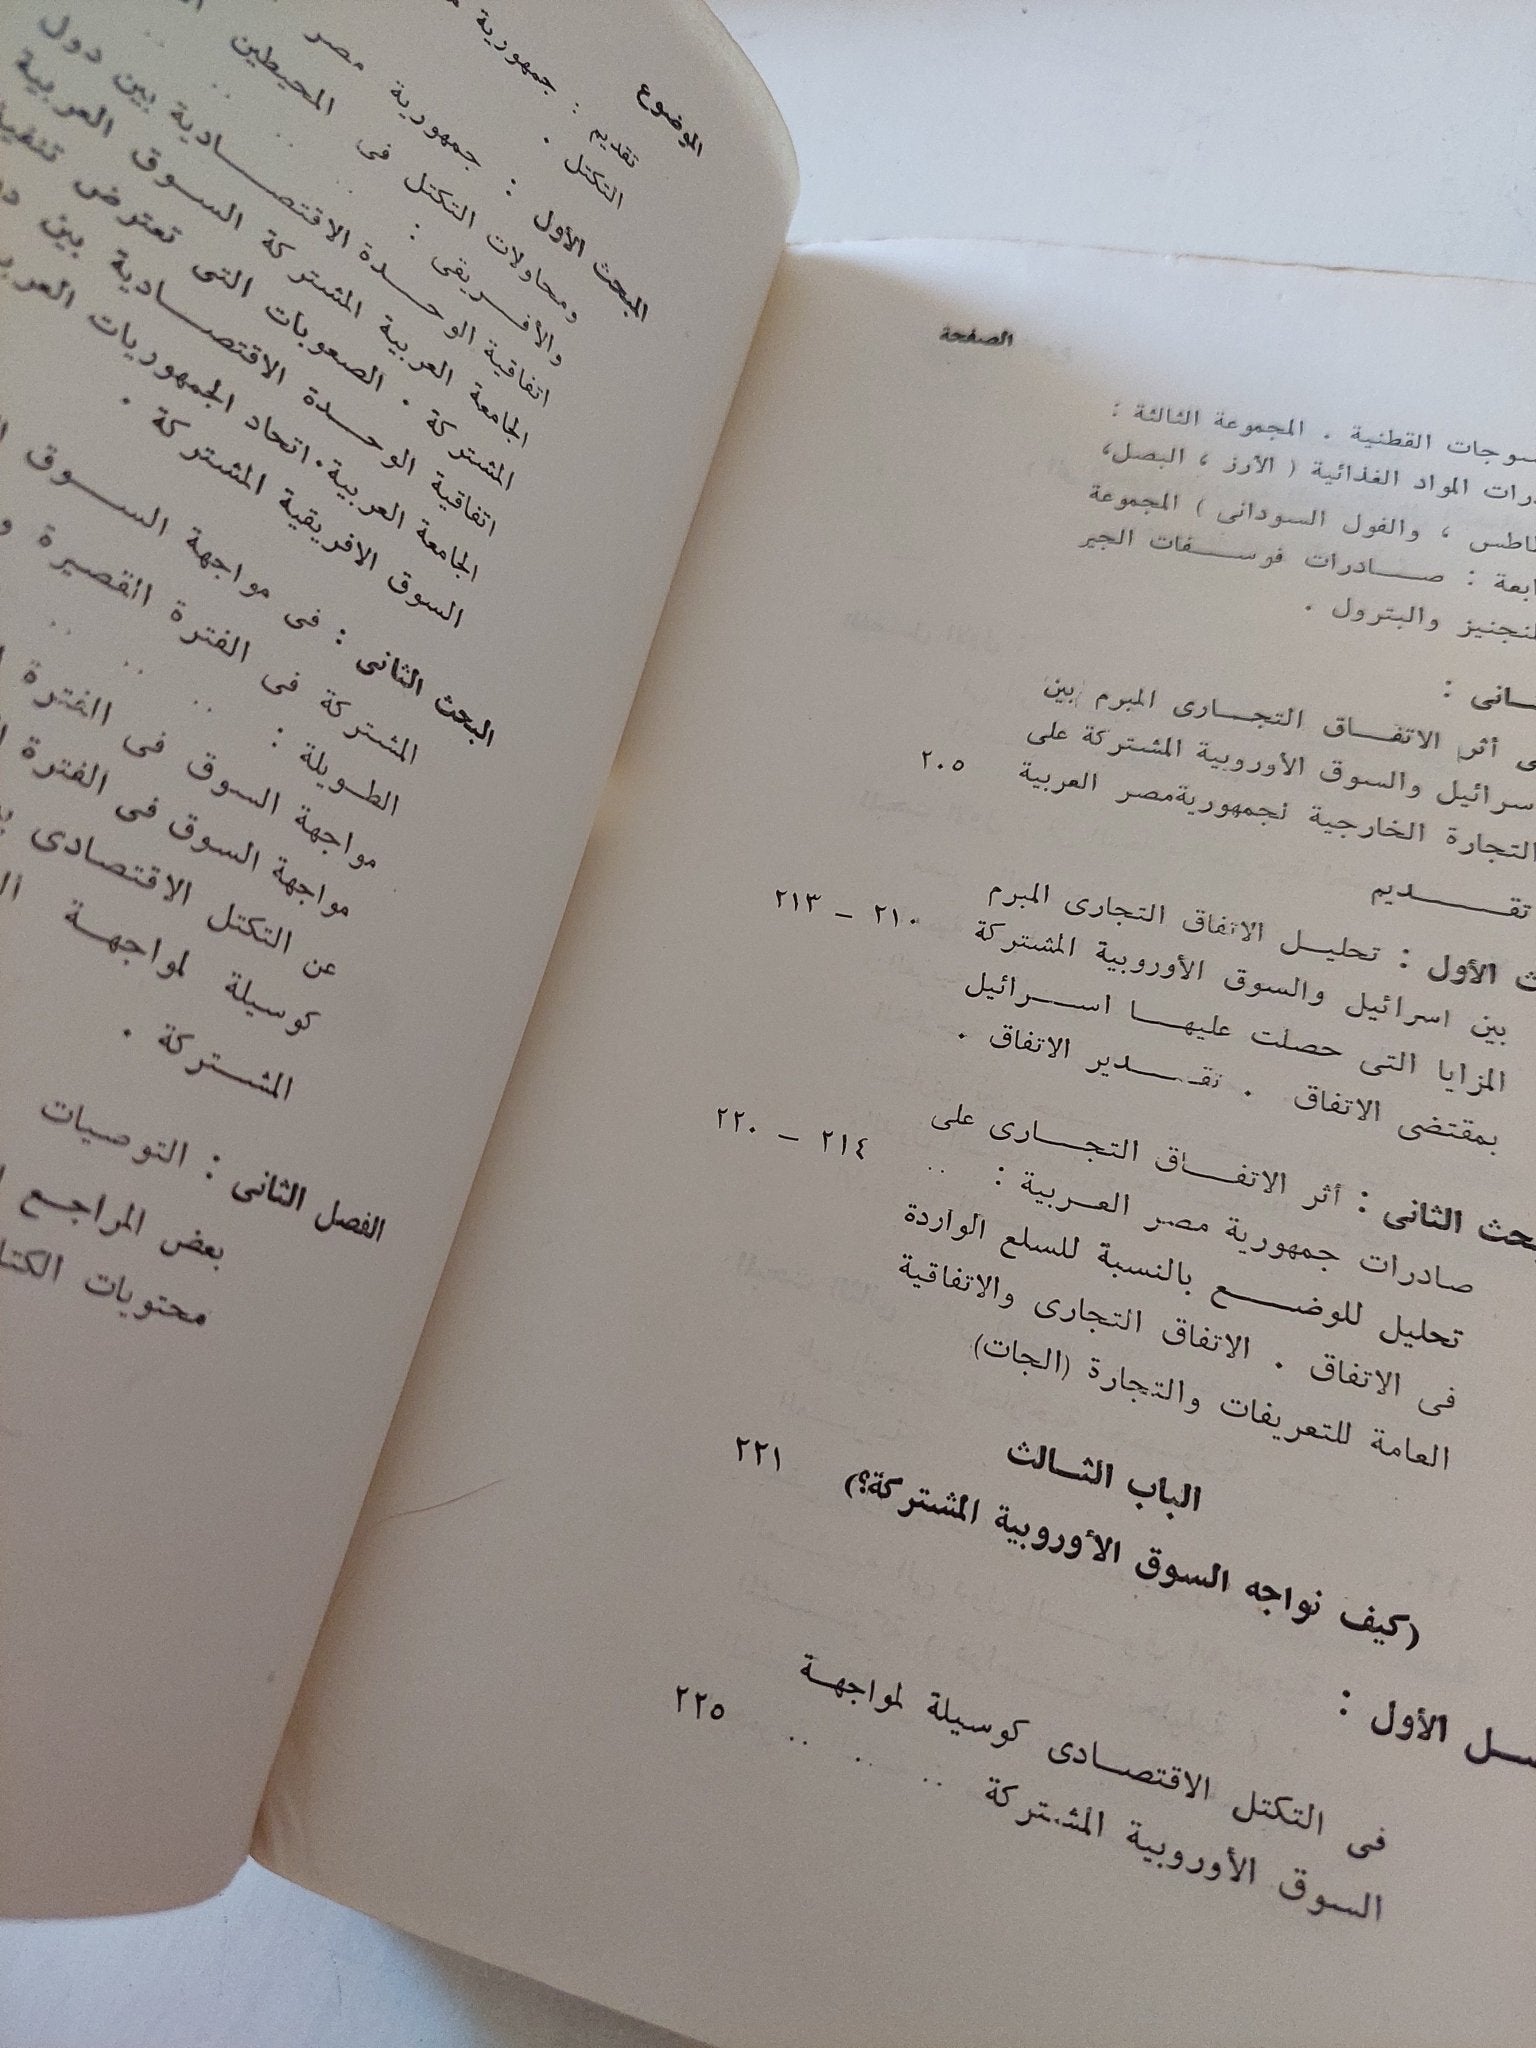 الصفحة
القطنية . المجموعة الثالثة :
المواد الغذائية ( الأرز ، البصل،
، والفول السودانى ) المجموعة
: صادرات فوسفات الجير
والبترول .
أثر الاتفاق التجارى المبرم بين
والسوق الأوروبية المشتركة على
التجارة الخارجية لجمهورية مصر العربية ٢٠٥
تقديم
الأول : تحليل الاتفاق التجارى المبرم
بين اسرائيل والسوق الأوروبية المشتركة ٢١٠ – ٢١٣
المزايا التى حصلت عليها اسرائيل
بمقتضى الاتفاق . تقدير الاتفاق .
الثانى : أثر الاتفاق التجارى على
صادرات جمهورية مصر العربية : .. ٢١٤ – ٢٢٠
تحليل للوضع بالنسبة للسلع الواردة
فى الاتفاق . الاتفاق التجارى والاتفاقية
العامة للتعريفات والتجارة (الجات)
الباب الثالث
(كيف نواجه السوق الأوروبية المشتركة؟) ٢٢١
الأول :
فى التكتل الاقتصادى كوسيلة لمواجهة
السوق الأوروبية المشتركة .. .. .. ٢٢٥
الموضوع
تقديم : جمهورية
التكتل .
المبحث الأول : جمهورية مصر
ومحاولات التكتل فى المحيطين
والأفريقى :
اتفاقية الوحدة الاقتصادية بين دول
الجامعة العربية المشتركة السوق العربية
المشتركة . الصعوبات التى تعترض
اتفاقية الوحدة الاقتصادية بين
الجامعة العربية. اتحاد الجمهوريات
السوق الافريقية المشتركة .
البحث الثانى : فى مواجهة السوق
المشتركة فى الفترة القصيرة
الطويلة :
مواجهة السوق فى الفترة
مواجهة السوق فى الفترة
عن التكتل الاقتصادى
كوسيلة لمواجهة
المشتركة .
الفصل الثانى : التوصيات
بعض المراجع
محتويات